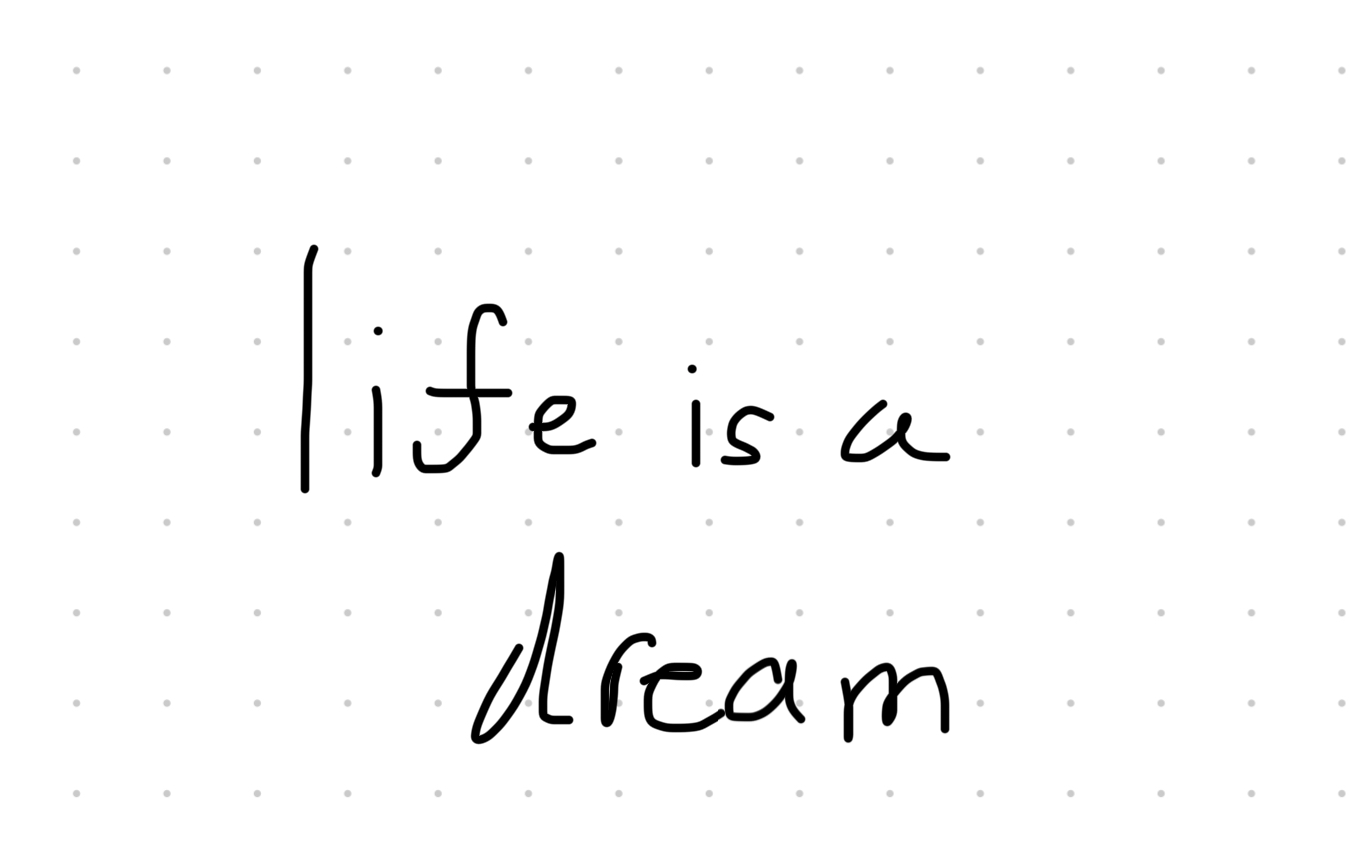 life is a
dream